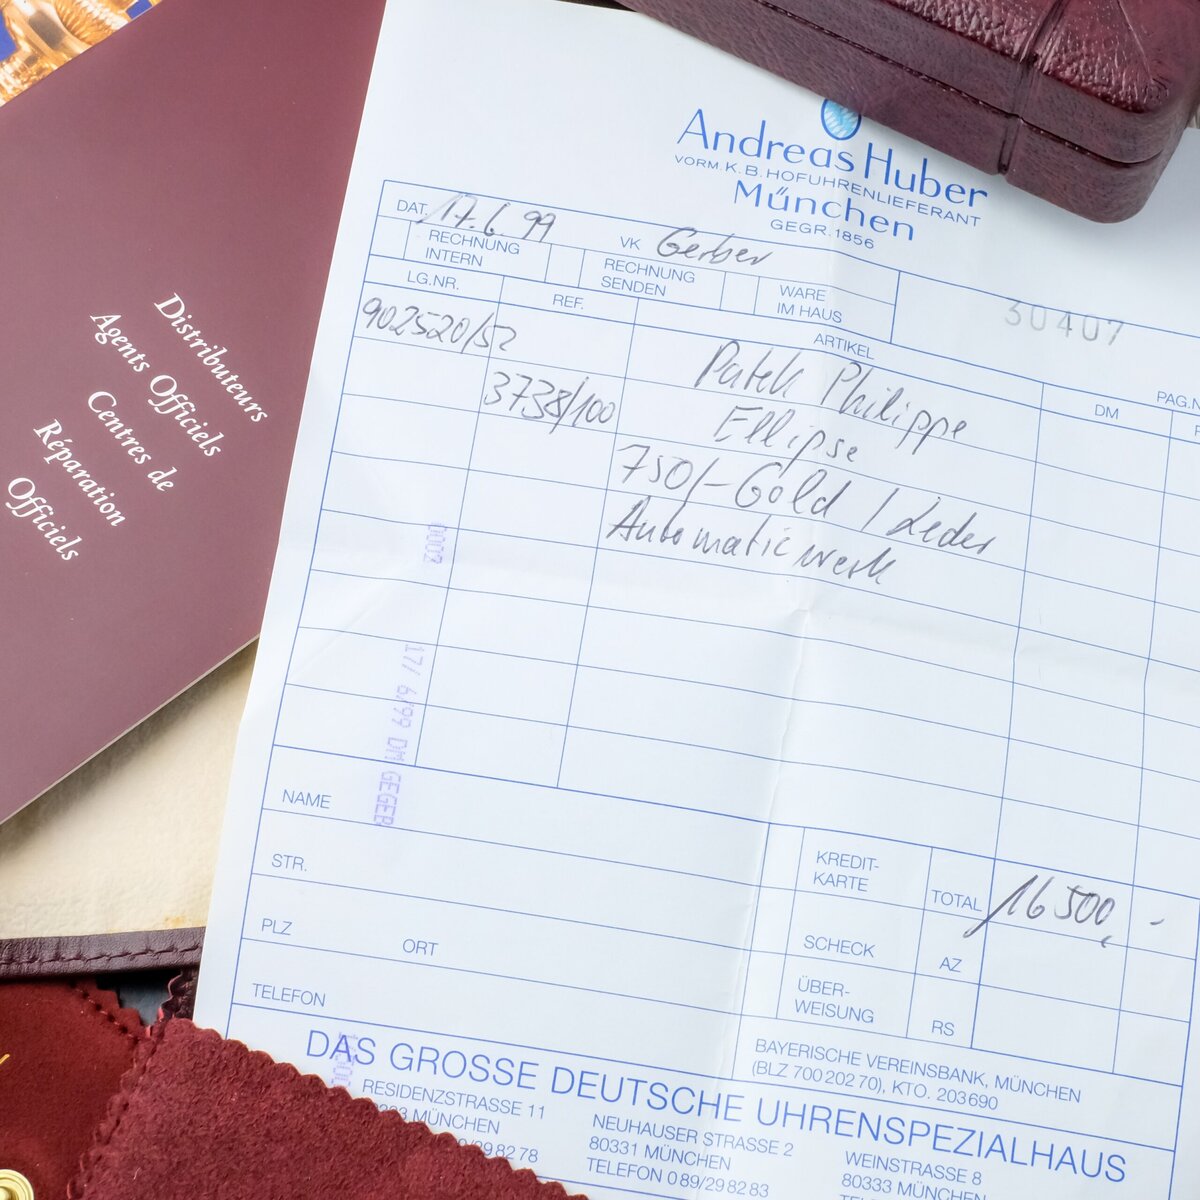 Distributeurs
Agents Officiels
Centres de
Réparation
Officiels
Andreas Huber
VORM. K. B. HOFUHRENLIEFERANT
München
GEGR. 1856
DAT. 17.6.99
VK Gerber
RECHNUNG
INTERN
RECHNUNG
SENDEN
WARE
IM HAUS
30407
LG.NR.
REF.
ARTIKEL
DM
PAG.N
902520/52
Patek Philippe
3738/100
Ellipse
750/- Gold / Leder
Automaticwerk
0002
17/ 6/99 DM GEGEB
NAME
STR.
PLZ
ORT
TELEFON
KREDIT-
KARTE
SCHECK
ÜBER-
WEISUNG
TOTAL 16500,-
AZ
RS
BAYERISCHE VEREINSBANK, MÜNCHEN
(BLZ 700 202 70), KTO. 203690
DAS GROSSE DEUTSCHE UHRENSPEZIALHAUS
RESIDENZSTRASSE 11
MÜNCHEN
29 82 78
NEUHAUSER STRASSE 2
80331 MÜNCHEN
TELEFON 0 89/29 82 83
WEINSTRASSE 8
80333 MÜNCHEN